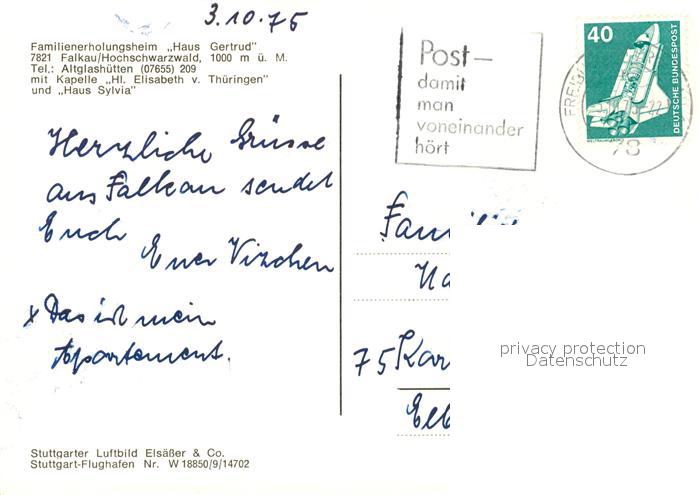 3.10.75
Familienerholungsheim „Haus Gertrud"
7821 Falkau/Hochschwarzwald, 1000 m ü. M.
Tel.: Altglashütten (07655) 209
mit Kapelle „Hl. Elisabeth v. Thüringen"
und „Haus Sylvia"
Post –
damit
man
voneinander
hört
40
DEUTSCHE BUNDESPOST
FREIB
78
Herzliche Grüsse
aus Falkau sendet
Euch
Euer Vizchen
x Das ist mein
Appartement.
Fam
75 Kar
privacy protection
Datenschutz
Stuttgarter Luftbild Elsäßer & Co.
Stuttgart-Flughafen Nr. W 18850/9/14702